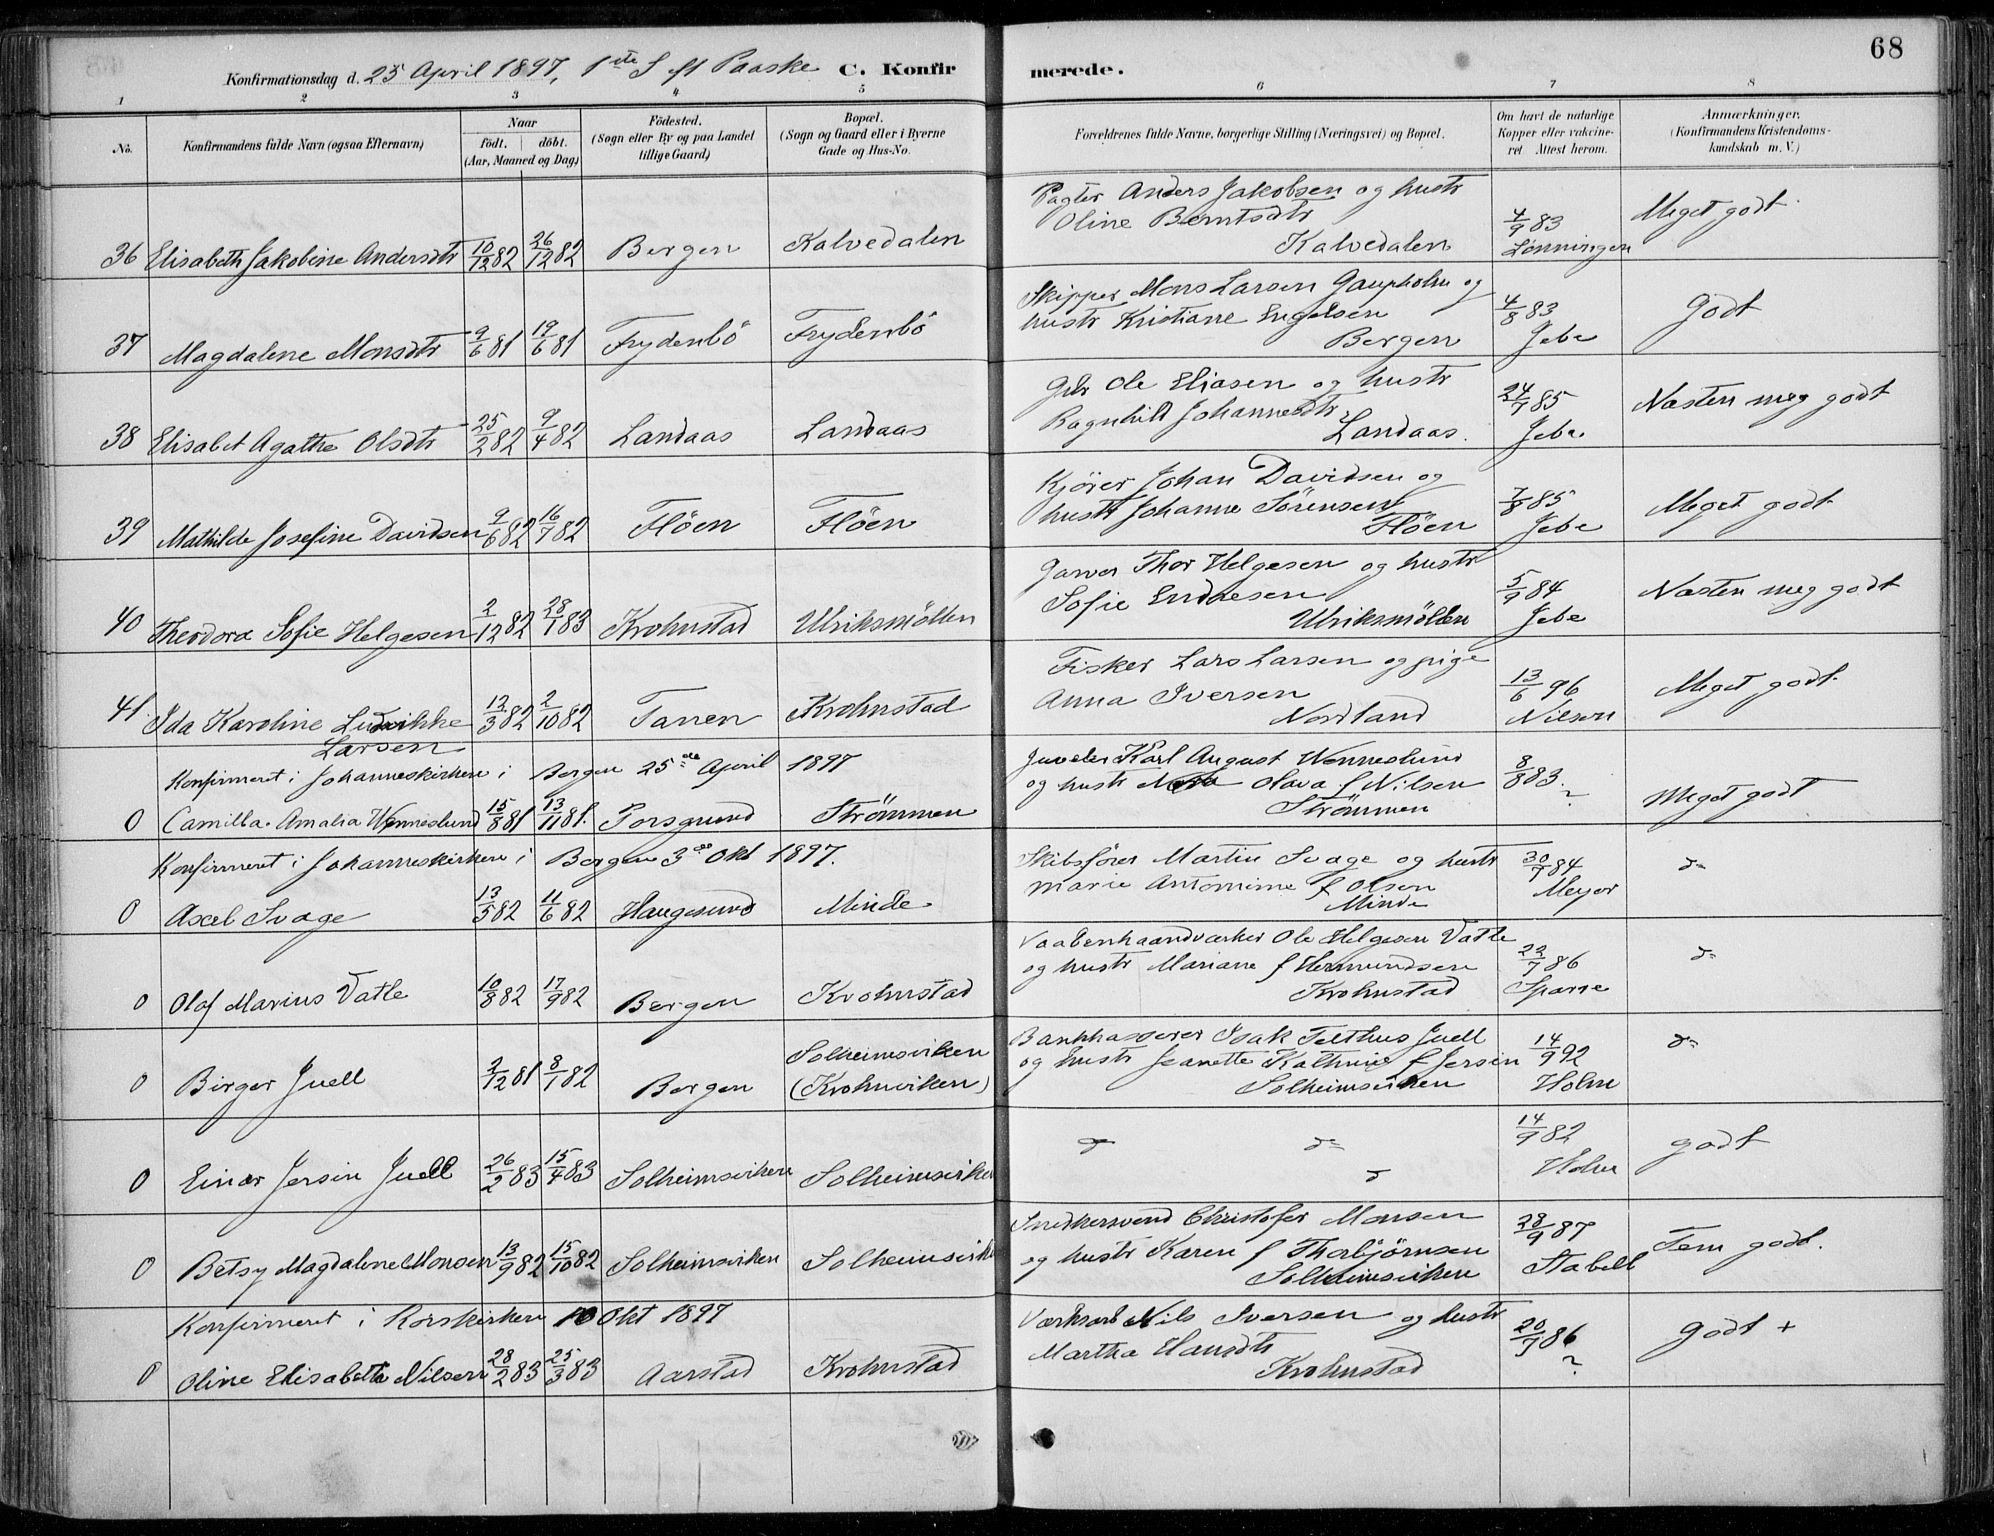 68
Konfirmationsdag d. 25 April 1897, 1ste S eft Paaske C. Konfirmerede.
1 2 3 4 5 6 7 8
No. Konfirmandens fulde Navn (ogsaa Efternavn) Naar födt. döbt. (Aar, Maaned og Dag) Födested. (Sogn eller By og paa Landet tillige Gaard) Bopæl. (Sogn og Gaard eller i Byerne Gade og Hus-No. Forældrenes fulde Navne, borgerlige Stilling (Næringsvei) og Bopæl. Om havt de naturlige Kopper eller vakcineret Attest herom. Anmærkninger. (Konfirmandens Kristendomskundskab m. V.)
36 Elisabeth Jakobine Andersdtr 10/12 82 26/12 82 Bergen Kalvedalen Pagter Anders Jakobsen og hustr Oline Berntsdtr Kalvedalen 4/9 83 Lonningen Meget godt.
37 Magdalene Monsdtr 9/6 81 19/6 81 Frydenbö Frydenbö Skipper Mons Larsen Gaupholm og hustr Kristiane Engelsen Bergen 4/8 83 Jebe Godt
38 Elisabet Agathe Olsdtr 25/2 82 9/4 82 Landaas Landaas Gbr Ole Eliasen og hustr Ragnhild Johannesdtr Landaas. 24/7 85 Jebe Næsten meg godt
39 Mathilde Josefine Davidsen 9/6 82 16/7 82 Flöen Flöen Kjörer Johan Davidsen og hustr Johanne Sörensen Flöen 7/8 85 Jebe Meget godt
40 Theodora Sofie Helgesen 2/12 82 28/1 83 Krohnstad Ulriksmöllen Garver Thor Helgesen og hustr Sofie Endresen Ulriksmöllen 5/9 84 Jebe Næsten meg godt
41 Ida Karoline Ludvikke Larsen 13/3 82 2/10 82 Tanen Krohnstad Fisker Lars Larsen og pige Anna Iversen Nordland 13/6 96 Nilson Meget godt.
Konfirmeret i Johanneskirken i Bergen 25de April 1897
0 Camilla Amalia Wenneslund 15/8 81 13/11 81. Porsgrund Strömmen Juveler Karl August Wenneslund og hustr Olava f Nilsen Strömmen 8/8 83. ? Meget godt
Konfirmeret i Johanneskirken i Bergen 3de Okt 1897.
0 Axel Svage 13/5 82 11/6 82 Haugesund Minde Skibsförer Martin Svage og hustr Marie Antomine f Olsen Minde 30/7 84 Meyer do
0 Olaf Marius Vatle 10/8 82 17/9 82 Bergen Krohnstad Vaabenhaandværker Ole Helgesen Vatle og hustr Mariane f Hermundsen Krohnstad 22/7 86 Sparre do
0 Birger Juell 2/12 81 8/1 82 Bergen Solheimsviken (Krohnviken) Bankkasserer Isak Telthus Juell og hustr Jeanette Kathrine f Jersin Solheimsviken 14/9 92 Holm do
0 Einar Jersin Juell 26/2 83 15/4 83 Solheimsviken Solheimsviken do do do 14/9 82 Holm godt
0 Betsy Magdalene Monsen 13/9 82 15/10 82 Solheimsviken Solheimsvik Snedkersvend Christofer Monsen og hustr Karen f Thorbjörnsen Solheimsviken 28/9 87 Stabell Tem godt.
Konfirmeret i Korskirken 10 Okt 1897
0 Oline Elisabeth Nilsen 28/2 83 25/3 83 Aarstad Krohnstad Værksarb Nils Iversen og hustr Martha Hansdtr Krohnstad 20/7 86 ? Godt +